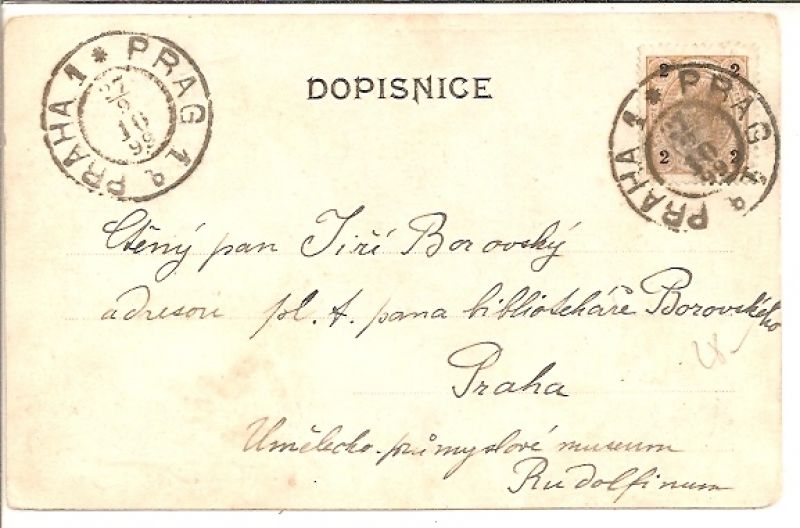 PRAG 1 a PRAHA 1 *
10
DOPISNICE
2 2
2 2
PRAG 1 a PRAHA 1 *
10
99
Ctěný pan Jiří Borovský
adresou pl. t. pana bibliotekáře Borovského
Praha
Umělecko-průmyslové museum
Rudolfinum